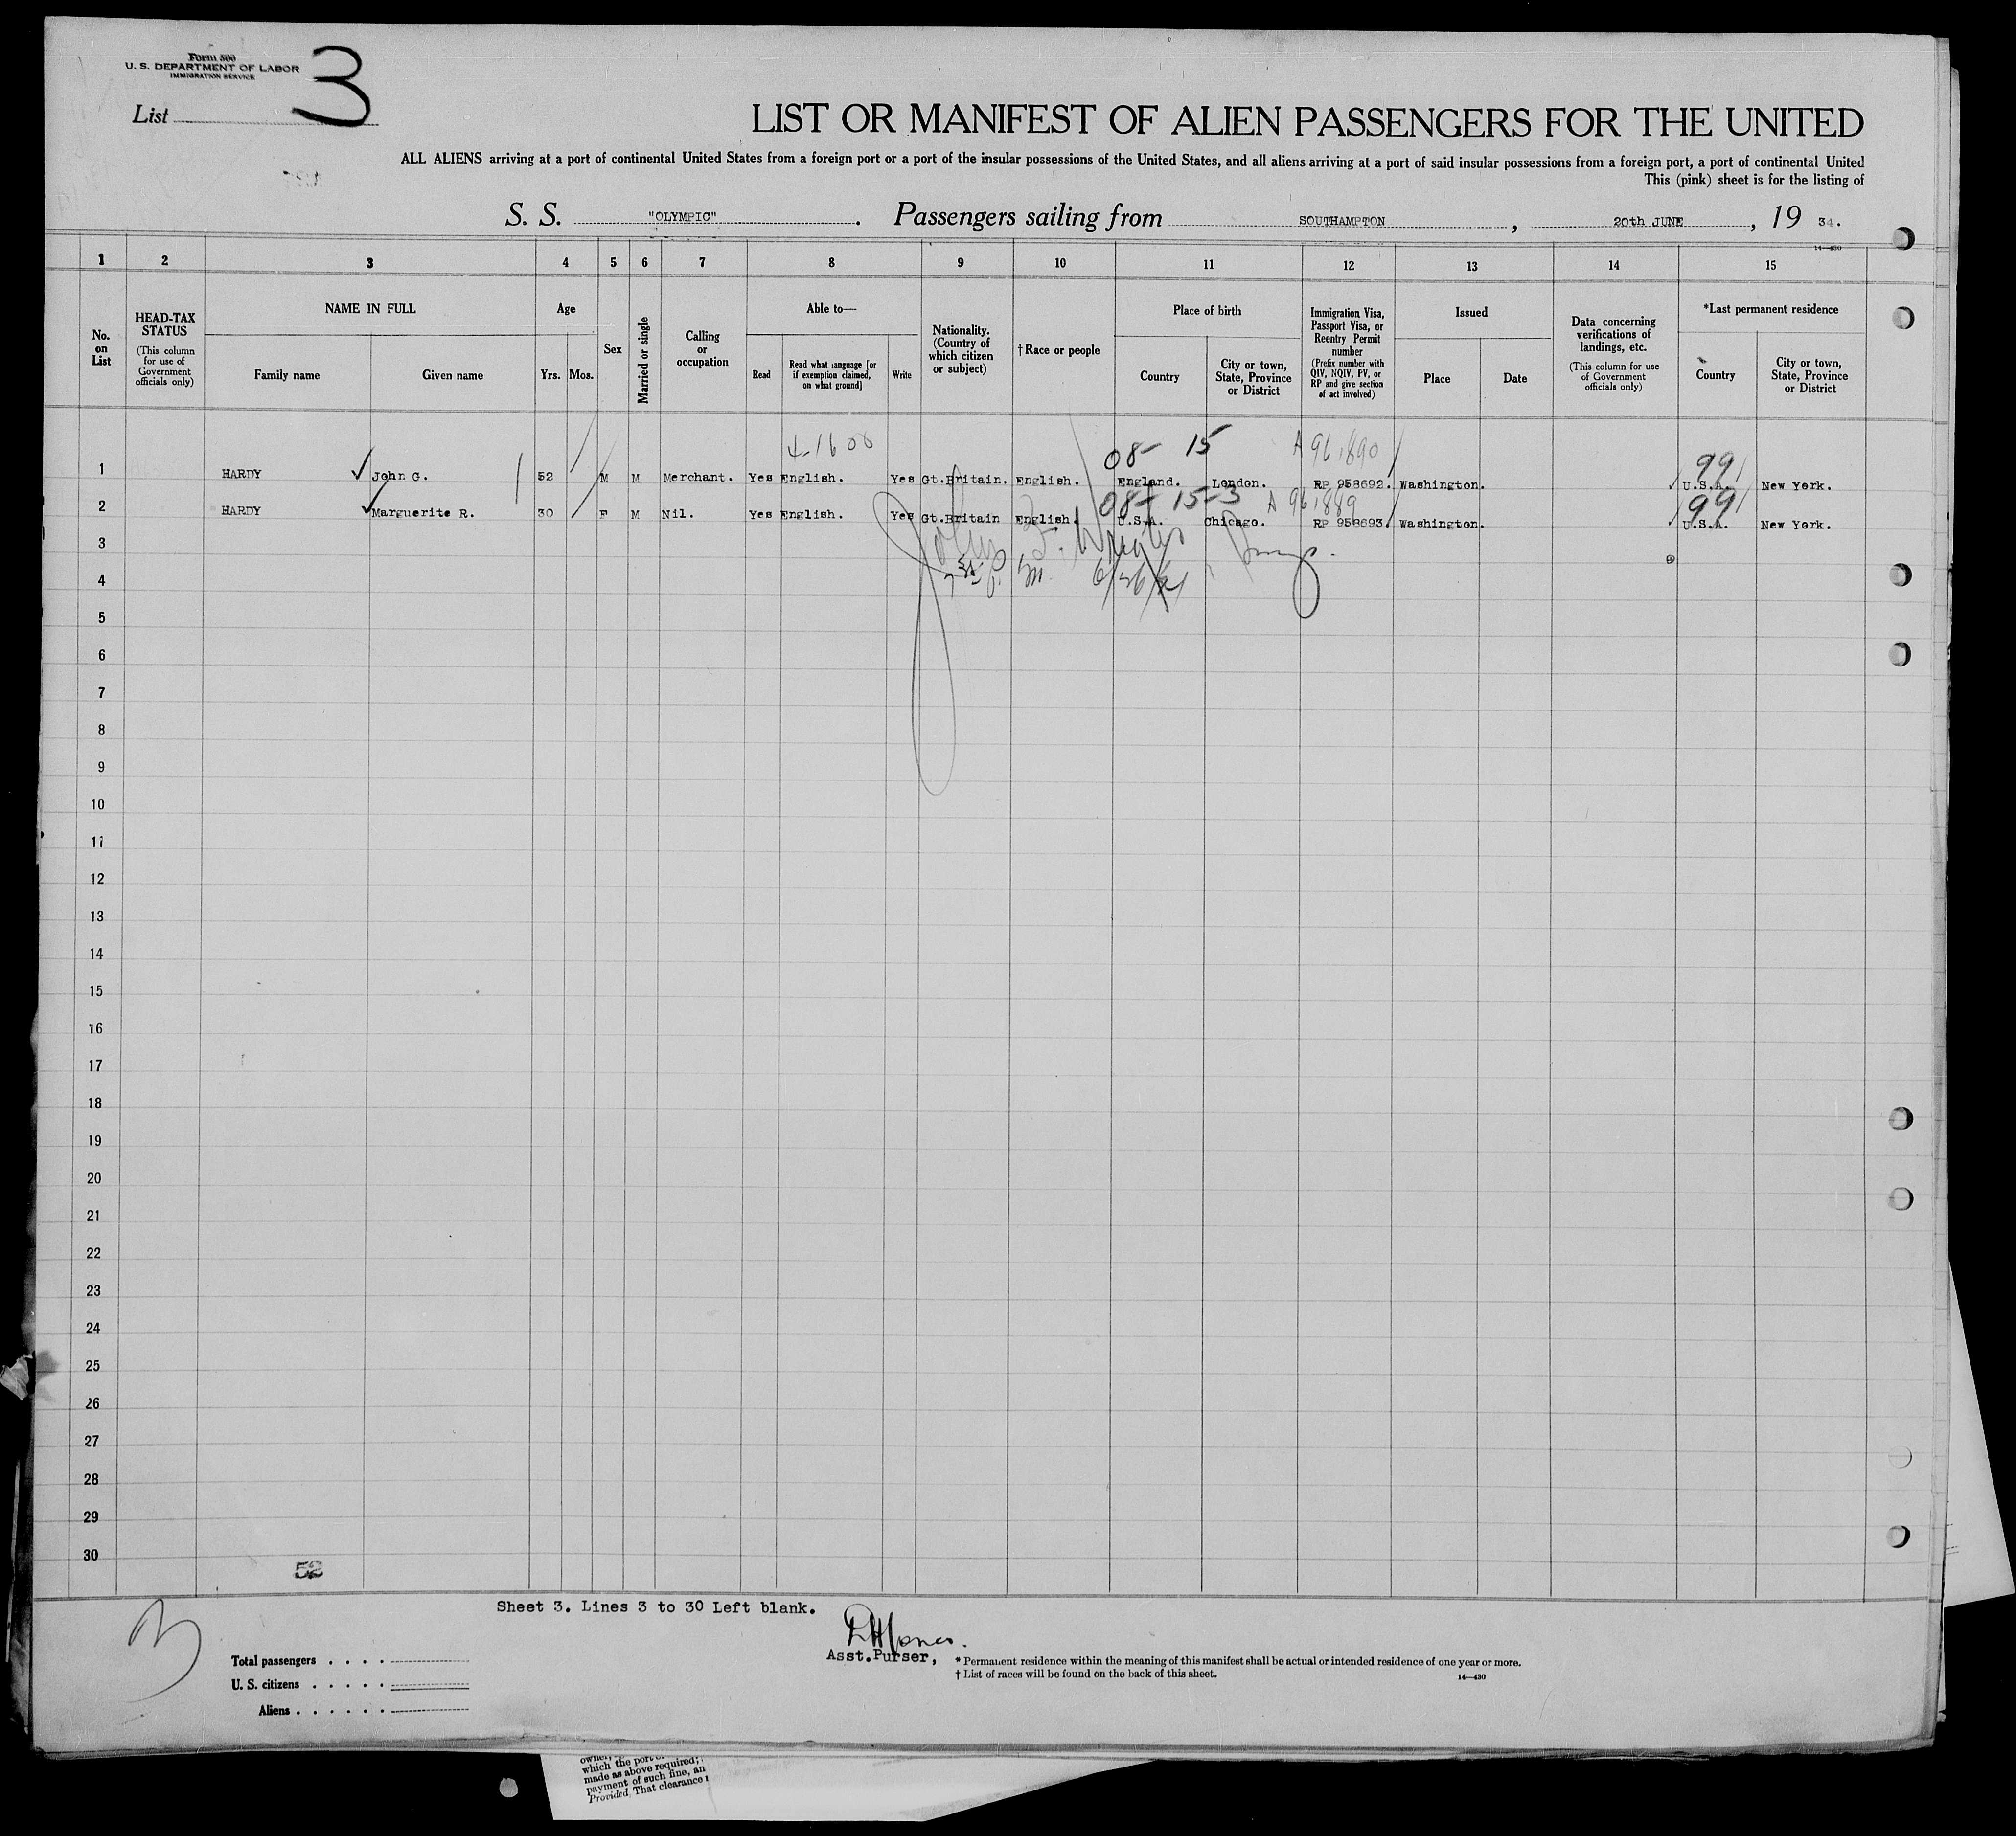 Form 500
U. S. DEPARTMENT OF LABOR
IMMIGRATION SERVICE
3
List
LIST OR MANIFEST OF ALIEN PASSENGERS FOR THE UNITED
ALL ALIENS arriving at a port of continental United States from a foreign port or a port of the insular possessions of the United States, and all aliens arriving at a port of said insular possessions from a foreign port, a port of continental United
This (pink) sheet is for the listing of
S. S. "OLYMPIC". Passengers sailing from SOUTHAMPTON, 20th JUNE, 19 34.
14—430
1 2 3 4 5 6 7 8 9 10 11 12 13 14 15
No. on List
HEAD-TAX STATUS
(This column for use of Government officials only)
NAME IN FULL
Family name
Given name
Age
Yrs. Mos.
Sex
Married or single
Calling or occupation
Able to—
Read
Read what language [or if exemption claimed, on what ground]
Write
Nationality. (Country of which citizen or subject)
†Race or people
Place of birth
Country
City or town, State, Province or District
Immigration Visa, Passport Visa, or Reentry Permit number
(Prefix number with QIV, NQIV, PV, or RP and give section of act involved)
Issued
Place
Date
Data concerning verifications of landings, etc.
(This column for use of Government officials only)
*Last permanent residence
Country
City or town, State, Province or District
08- 15 A 961890 99
1 HARDY John G. 52 M M Merchant. Yes English. Yes Gt.Britain. English. England. London. RP 958692. Washington. U.S.A. New York.
08- 15-3 A 961889 99
2 HARDY Marguerite R. 30 F M Nil. Yes English. Yes Gt.Britain English. U.S.A. Chicago. RP 958693. Washington. U.S.A. New York.
3
4
5
6
7
8
9
10
11
12
13
14
15
16
17
18
19
20
21
22
23
24
25
26
27
28
29
30
52
Sheet 3. Lines 3 to 30 Left blank.
Asst.Purser,
Total passengers
U. S. citizens
Aliens
* Permanent residence within the meaning of this manifest shall be actual or intended residence of one year or more.
† List of races will be found on the back of this sheet.
14—430
which the port
made as above required;
payment of such fine, an
Provided, That clearance